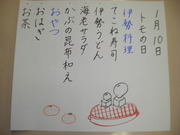 1月10日
トモの日
伊勢料理
てこね寿司
伊勢うどん
海老サラダ
かぶの昆布和え
おやつ
おはぎ
お茶